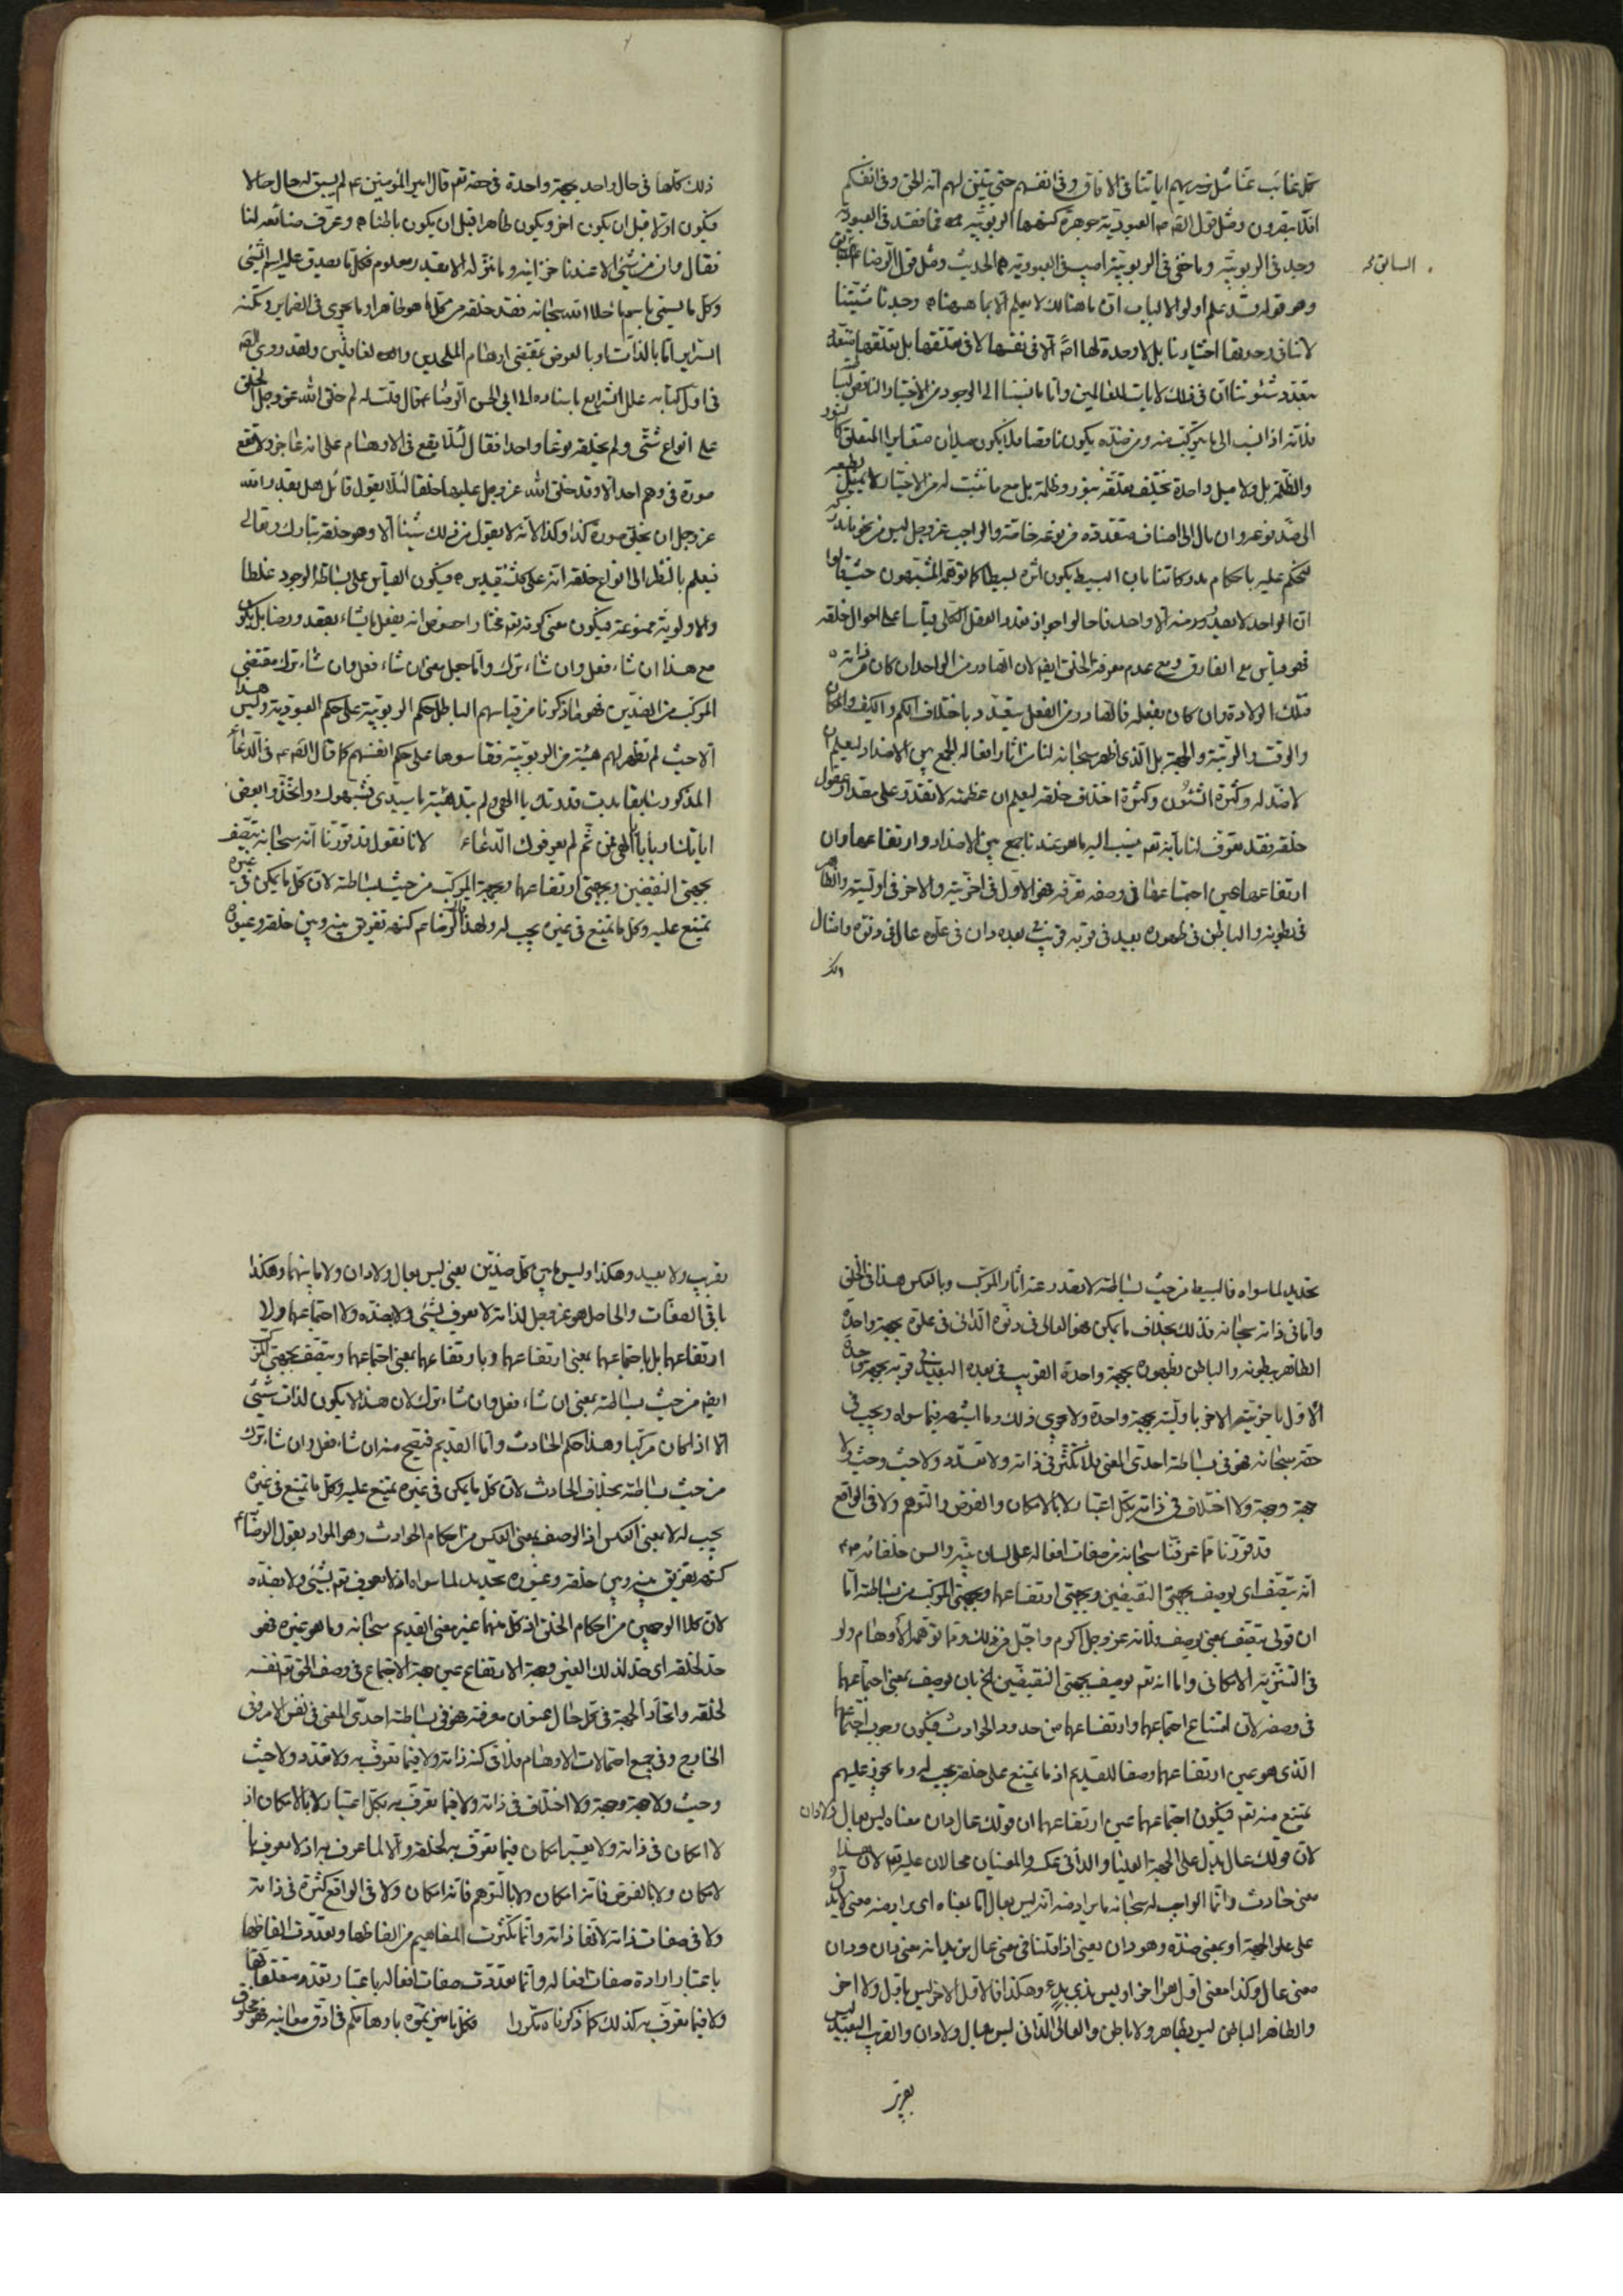 كل غائب عنا مثل سنريهم اياتنا فى الافاق وفى انفسهم حتى يتبين لهم انه الحق وفى انفسكم
افلا تبصرون ومثل قول الصه ع العبودية جوهرة كنهها الربوبية فما فقد فى العبودية
وجد فى الربوبية وما خفى فى الربوبية اصيب فى العبودية الحديث ومثل قول الرضا ع السابق
السابق
وهو قوله قد علم اولوا الالباب ان ما هنالك لا يعلم الا بما هيهنا وجدنا مشيتنا
لا تنافى وحدتها اختيارنا بل لا وحدة لها الا فى نفسها لا فى تعلقها بل تعلقها متعدد
بتعدد شئوننا ان فى ذلك لايات للعالمين واما ما نسبنا الى الوجود من الاختيار الناقص
فلانه اذا نسب الى ما يتركب منه ومن ضده يكون ناقصا فلا يكون ميلان متغايرا المتعلق كالنور
والظلمة بل ولا ميل واحدة تختلف تعلقه بنور وظلمة بل مع ما نثبت له من الاختيار لا يميل بطبعه
الى ضد نوعه وان مال الى اصناف متعددة من نوعه خاصة والواجب عز وجل ليس من نحو ما ندركه
لنحكم عليه باحكام مدركاتنا بان البسيط يكون اثره بسيطا كما توهمه المشبهون حيث قالوا
ان الواحد لا يصدر منه الا واحد فاحالوا جواز تعدد العقل الكلى قياسا على احوال خلقه
فهو قياس مع الفارق ومع عدم معرفة الخلق ايضا لان الصادر من الواحد ان كان من ذاته
فتلك الولادة وان كان بفعله فالصادر من الفعل يتعدد باختلاف الكم والكيف والمكان
والوقت والرتبة والجهة بل الذى اظهر سبحانه لنا من اثار افعاله الجمع بين الاضداد ليعلم ان
لا ضد له وكثرة الشئون وكثرة اختلاف خلقه ليعلم ان عظمته لا تقدر على مقدار عقول
خلقه فقد تعرف لنا بانه تعم ينسب اليه ما هو عندنا جمع بين الاضداد وارتفاعها وان
ارتفاعها عين اجتماعها فى وصفه تعرفه فهو الاول فى اخريته والاخر فى اوليته والظاهر
فى بطونه والباطن فى ظهوره بعيد فى قربه قريب فى بعده دان فى علوه عال فى دنوه وامثال
ذلك كلها فى حال واحد بجهة واحدة فى حقه تعم قال امير المؤمنين ع لم يسبق له حال حالا
فيكون اولا قبل ان يكون اخرا ويكون ظاهرا قبل ان يكون باطنا وعرف صنائعه لنا
فقال وان من شئ الا عندنا خزائنه وما ننزله الا بقدر معلوم فكل ما يصدق عليه اسم الشئ
وكل ما يسمى باسم ما خلا الله سبحانه فقد خلقه من كل ما هو ظاهر او ما يحوى فى الضماير وتكنه
السراير اما بالذات او بالعرض بمقتضى اوهام الملحدين ولقد روى الصه
فى اول كتابه علل الشرايع باسناده الى ابى الحسن الرضا ع قال قلت له لم خلق الله عز وجل الخلق
على انواع شتى ولم يخلقه نوعا واحدا فقال لئلا يقع فى الاوهام على انه عاجز ولا تقع
صورة فى وهم احد الا وقد خلق الله عز وجل عليها خلقا لئلا يقول قائل هل يقدر الله
عز وجل ان يخلق صورة كذا وكذا لانه لا يقول من ذلك شيئا الا وهو خلقه تبارك وتعالى
فيعلم بالنظر الى انواع خلقه انه على كل شئ قدير فيكون القياس على بساطة الوجود غلطا
والاولوية ممنوعة فيكون معنى كونه تعم مختارا اخص من انه يفعل ما يشاء بقصد ورضا بل يكون
مع هذا ان شاء فعل وان شاء ترك واما جعل معنى ان شاء فعل وان شاء ترك مقتضى
المركب من الضدين فهو ما ذكرنا من قياسهم الباطل حكم الربوبية على حكم العبودية وليس هذا
الا حيث لم تظهر لهم هيئة من الربوبية فقاسوها على حكم انفسهم كما قال الصه ع فى الدعاء
المذكور سابقا بدت قدرتك يا الهى ولم تبد هيئة يا سيدى فشبهوك واتخذوا بعض
اياتك اربابا يا الهى فمن ثم لم يعرفوك الدعاء لانا نقول قد قررنا انه سبحانه يتصف
بجهتى النقيضين وبجهتى ارتفاعهما وبجهة المركب من حيث بساطته لان كل ما يمكن فى غيره
يمتنع عليه وكل ما يمتنع فى غيره يجب له ولهذا قال الرضا ع كنهه تفريق بينه وبين خلقه وغيوره
تحديد لما سواه فالبسيط من حيث بساطته لا تصدر عنه اثار المركب وبالعكس هذا فى الخلق
واما فى ذاته سبحانه فذلك بخلاف ما يمكن فهو العالى فى دنوه الدانى فى علوه بجهة واحدة
الظاهر ببطونه والباطن بظهوره بجهة واحدة القريب فى بعده البعيد فى قربه بجهة واحدة
الاول باخريته الاخر باوليته بجهة واحدة ولا يجرى ذلك وما اشبهه فيما سواه ويجب فى
حقه سبحانه فهو فى بساطته احدى المعنى فلا تكثر فى ذاته ولا تعدد ولا حيث وحيث ولا
جهة وجهة ولا اختلاف فى ذاته بكل اعتبار لا بالامكان والفرض والتوهم ولا فى الواقع
قد قررنا مما عرفنا سبحانه من صفات افعاله على لسان نبيه والسن خلفائه ع
انه يتصف اى يوصف بجهتى النقيضين وبجهتى ارتفاعهما وبجهتى المركب من بساطته اما
ان قولى يتصف بمعنى يوصف فلانه عز وجل اكرم واجل من ذلك ومما توهمه الاوهام ولو
فى التنزيه الامكانى واما انه تعم يوصف بجهتى النقيضين الخ بان يوصف بمعنى اجتماعهما
فى وصفه لان امتناع اجتماعهما وارتفاعهما من حدود الحوادث فيكون وجوب اجتماعهما
الذى هو عين ارتفاعهما وصفا للقديم اذ ما يمتنع على خلقه يجب له وما يجوز عليهم
يمتنع منه تعم فيكون اجتماعهما عين ارتفاعهما ان قولك عال دان معناه ليس بعال ولا دان
لان قولك عال يدل على الجهة العليا والدانى عكسه والمعنيان محالان عليه تعم لان هذا
معنى حادث وانما الواجب له سبحانه ما يراد منه انه ليس بعال اما بمعناه اى يراد منه معنى لا يدل
على على الجهة او بمعنى ضده وهو دان يعنى اذا قلنا فى معنى عال نريد انه معنى دان ودان
معنى عال وكذا معنى اول هو اخر او ليس بذى بدء وهكذا فالاول الاخر ليس باول ولا اخر
والظاهر الباطن ليس بظاهر ولا باطن والعالى الدانى ليس بعال ولا دان والقريب البعيد ليس
بقريب
بقريب ولا بعيد وهكذا وليس ما بين كل ضدين يعنى ليس بعال ولا دان ولا ما بينهما وهكذا
باقى الصفات والحاصل هو عز وجل لذاته لا يعرف بشئ ولا بضده ولا اجتماعهما ولا
ارتفاعهما بل باجتماعهما بمعنى ارتفاعهما وبارتفاعهما بمعنى اجتماعهما ويتصف بجهتى المركب
ايضا من حيث بساطته بمعنى ان شاء فعل وان شاء ترك لان هذا لا يكون لذات شئ
الا اذا كان مركبا وهذا حكم الحادث واما القديم فيصح منه ان شاء فعل وان شاء ترك
من حيث بساطته بخلاف الحادث لان كل ما يمكن فى غيره يمتنع عليه وكل ما يمتنع فى غيره
يجب له لا بمعنى العكس اذ الوصف بمعنى العكس من احكام الحوادث وهو المراد بقول الرضا ع
كنهه تفريق بينه وبين خلقه وغيوره تحديد لما سواه اذ لا يعرف تعم بشئ ولا بضده
لان كلا الوجهين من احكام الخلق اذ كل منهما غير معنى القديم سبحانه وما هو غيره فهو
حد لخلقه اى حد لذلك الغير وجهة الارتفاع عين جهة الاجتماع فى وصف الحق تعم نفسه
لخلقه واتحاد الجهة فى كل حال بعنوان معرفته فهو فى بساطته احدى المعنى فى نفس الامر وفى
الخارج وفى جميع احتمالات الاوهام فلا فى كنه ذاته ولا فيما تعرف به ولا تعدد ولا حيث
وحيث ولا جهة وجهة ولا اختلاف فى ذاته ولا فيما تعرف به بكل اعتبار لا بالامكان اذ
لا امكان فى ذاته ولا يعتبر امكان فيما تعرف به لخلقه والا لما عرف به اذ لا يعرف با
لامكان ولا بالفرض فانه امكان ولا بالتوهم فانه امكان ولا فى الواقع كثرة فى ذاته
ولا فى صفات ذاته لانها ذاته وانما تكثرت المفاهيم من الفاظها وتعددت الفاظها
باعتبار ارادة صفات افعاله وانما تعددت صفات افعاله باعتبار تعدد متعلقاتها
ولا فيما تعرف به كذلك كما ذكرناه مكررا فكل ما ميزتموه باوهامكم فى ادق معانيه فهو مخلوق